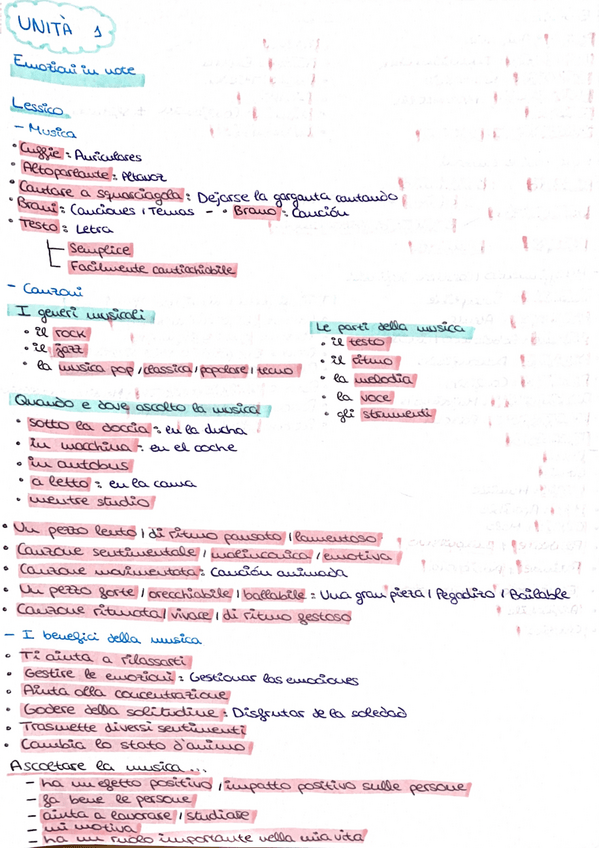 UNITÀ 1
Emozioni in voce
Lessico
- Musica
• Cuffie: Auriculares
• Altoparlante: Altavoz
• Cantare a squarciagola: Dejarse la garganta cantando
• Brani: Canciones / Temas - • Brano: Canción
• Testo: Letra
Semplice
Facilmente canticchiabile
- Canzoni
I generi musicali
• il rock
• il jazz
• la musica pop / classica / popolare / tecno
Le parti della musica
• il testo
• il ritmo
• la melodia
• la voce
• gli strumenti
Quando e dove ascolto la musica
• sotto la doccia: en la ducha
• in macchina: en el coche
• in autobus
• a letto: en la cama
• mentre studio
• Un pezzo lento / di ritmo pausato / lamentoso
• Canzone sentimentale / malinconica / emotiva
• Canzone movimentata: Canción animada
• Un pezzo forte / orecchiabile / ballabile: Una gran pieza / Pegadizo / Bailable
• Canzone ritmata / vivace / di ritmo gestoso
- I benefici della musica
• Ti aiuta a rilassarti
• Gestire le emozioni: Gestionar las emociones
• Aiuta alla concentrazione
• Godere della solitudine: Disfrutar de la soledad
• Trasmette diversi sentimenti
• Cambia lo stato d'animo
Ascoltare la musica...
- ha un efetto positivo / impatto positivo sulle persone
- fa bene le persone
- aiuta a lavorare / studiare
- mi motiva
- ha un ruolo importante nella mia vita